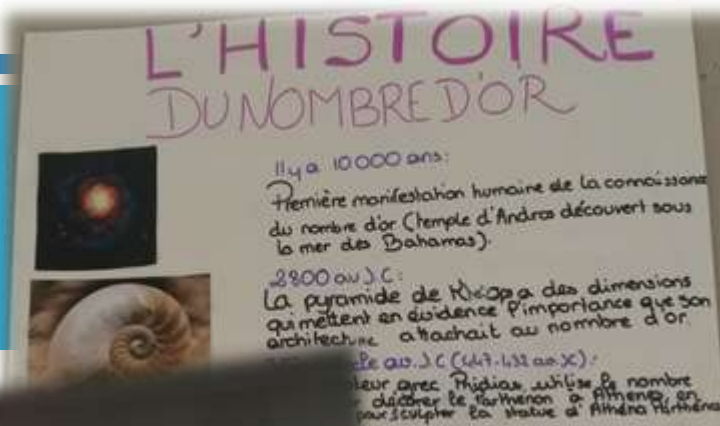 L'HISTOIRE
DU NOMBRE D'OR
Il y a 10000 ans:
Première manifestation humaine de la connaissance
du nombre d'or (temple d'Andros découvert sous
la mer des Bahamas).
2800 av J C:
La pyramide de Kheops a des dimensions
qui mettent en évidence l'importance que son
architecture attachait au nombre d'or.
av. J C (447-432 av. JC):
avec Phidias utilise le nombre
décorer le Parthénon à Athènes, en
pour sculpter la statue d'Athéna Parthénos